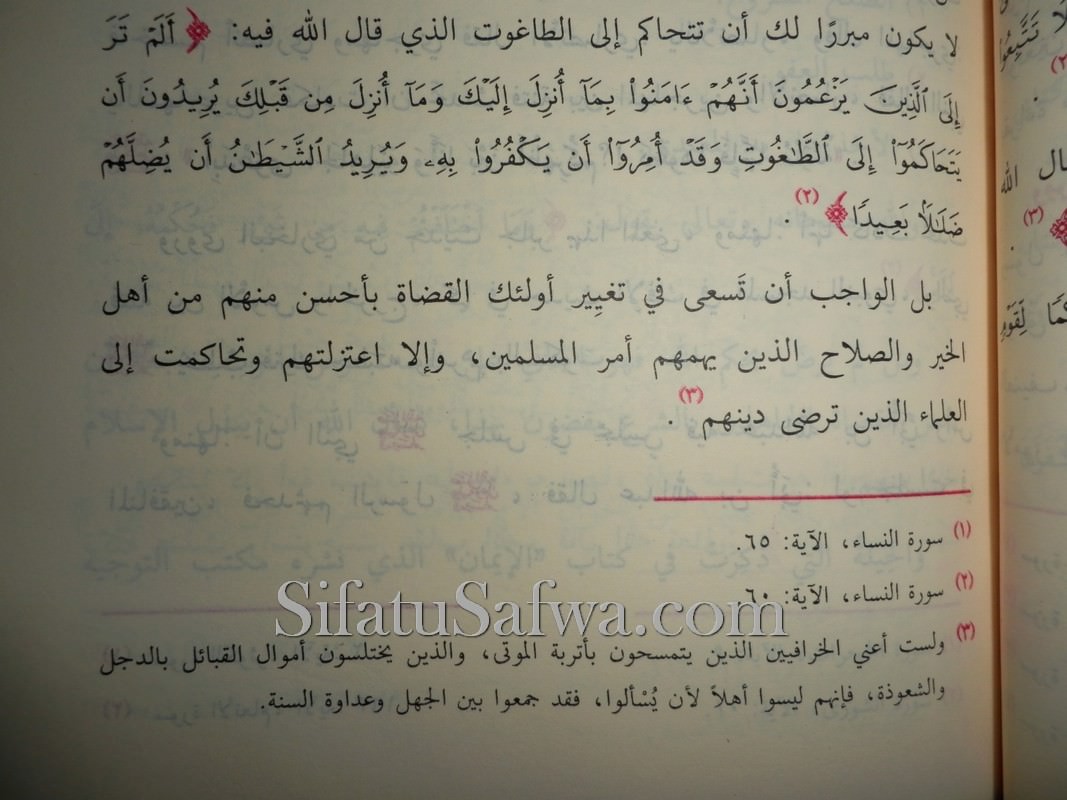 لا يكون مبررًا لك أن تتحاكم إلى الطاغوت الذي قال الله فيه: ﴿ أَلَمْ تَرَ
إِلَى ٱلَّذِينَ يَزْعُمُونَ أَنَّهُمْ ءَامَنُوا۟ بِمَآ أُنزِلَ إِلَيْكَ وَمَآ أُنزِلَ مِن قَبْلِكَ يُرِيدُونَ أَن
يَتَحَاكَمُوٓا۟ إِلَى ٱلطَّٰغُوتِ وَقَدْ أُمِرُوٓا۟ أَن يَكْفُرُوا۟ بِهِۦ وَيُرِيدُ ٱلشَّيْطَٰنُ أَن يُضِلَّهُمْ
ضَلَٰلًۢا بَعِيدًا ﴾(٢).
بل الواجب أن تَسعى في تغيِير أولئك القضاة بأحسن منهم من أهل
الخير والصلاح الذين يهمهم أمر المسلمين، وإلا اعتزلتهم وتحاكمت إلى
العلماء الذين ترضى دينهم(٣).
(١) سورة النساء، الآية: ٦٥.
(٢) سورة النساء، الآية: ٦٠.
SifatuSafwa.com
(٣) ولست أعني الخرافيين الذين يتمسحون بأتربة الموتى، والذين يختلسون أموال القبائل بالدجل
والشعوذة، فإنهم ليسوا أهلاً لأن يُسْألوا، فقد جمعوا بين الجهل وعداوة السنة.